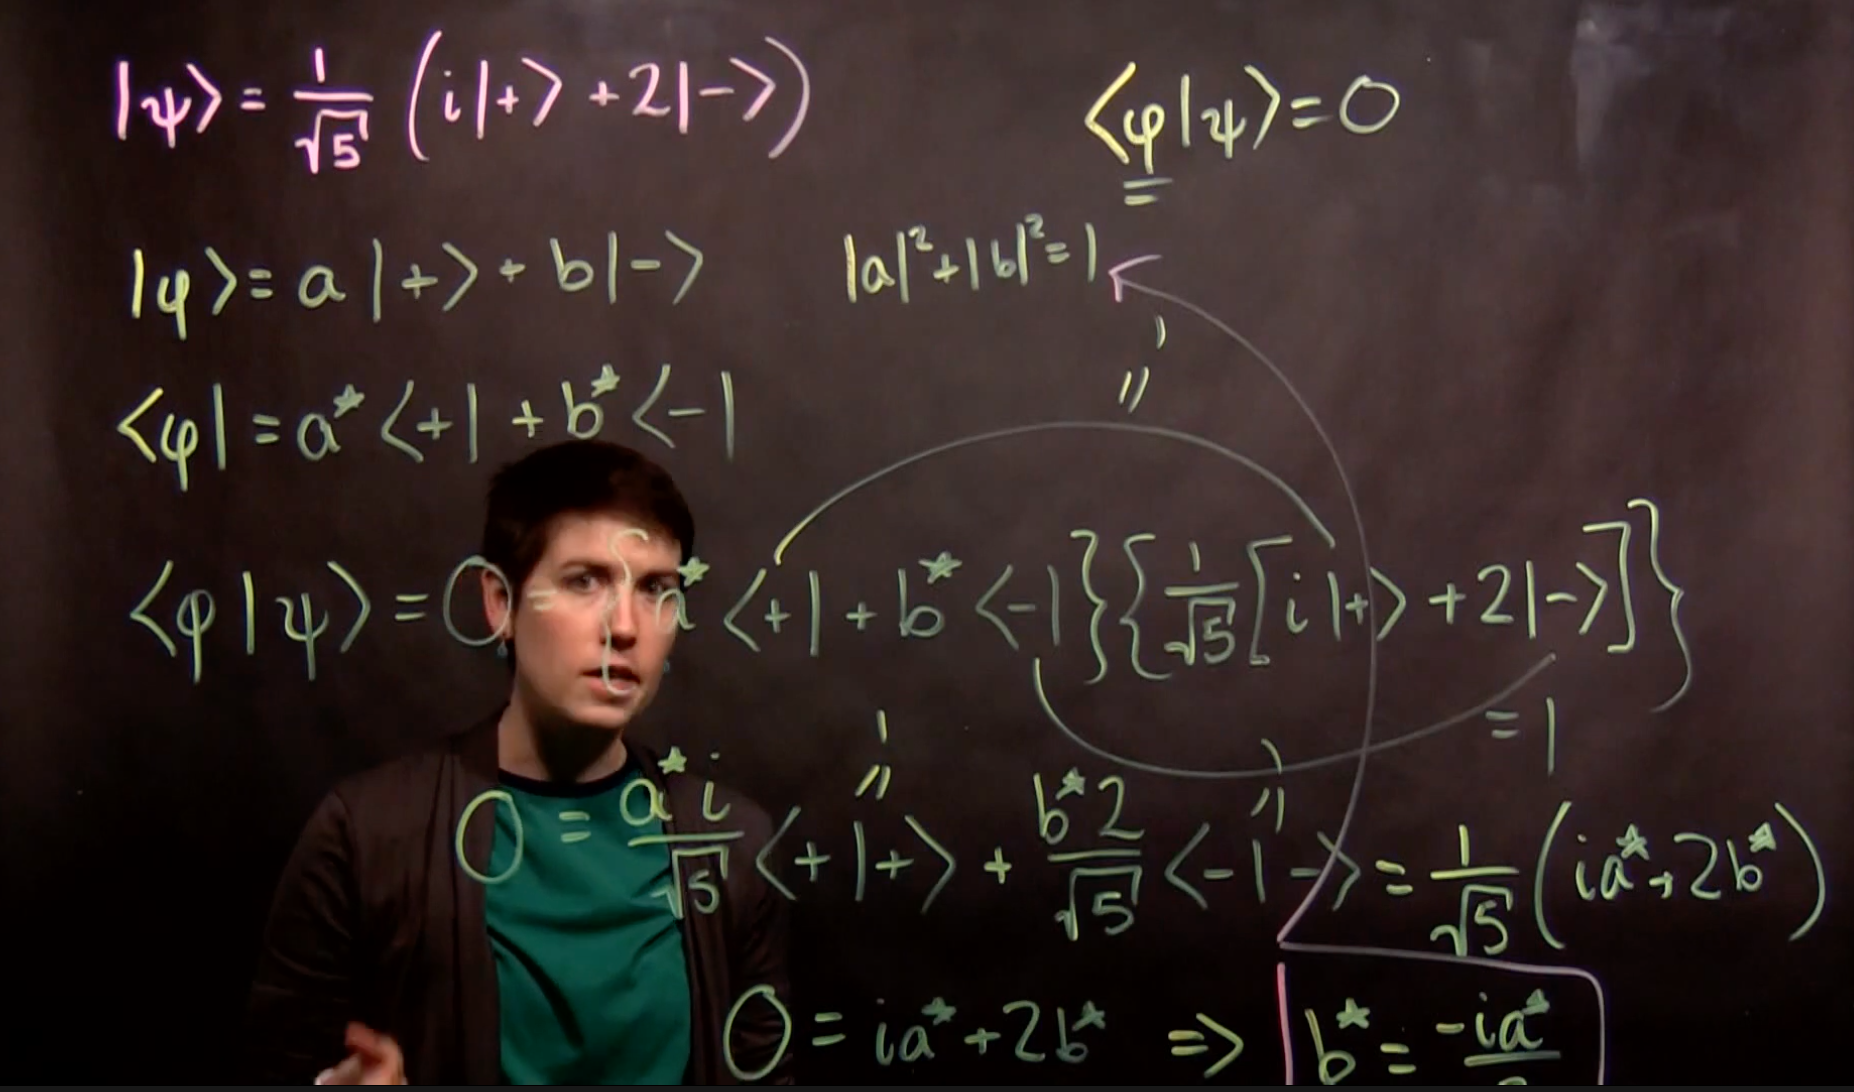 |ψ⟩ = 1/√5 (i|+⟩ + 2|−⟩)
⟨φ|ψ⟩ = 0
|φ⟩ = a|+⟩ + b|−⟩
|a|² + |b|² = 1
⟨φ| = a* ⟨+| + b* ⟨−|
1
"
⟨φ|ψ⟩ = 0 = { a* ⟨+| + b* ⟨−| } { 1/√5 [ i|+⟩ + 2|−⟩ ] }
= 1
1
"
1
"
0 = a*i/√5 ⟨+|+⟩ + b*2/√5 ⟨−|−⟩ = 1/√5 (ia* + 2b*)
0 = ia* + 2b* ⇒ b* = −ia*